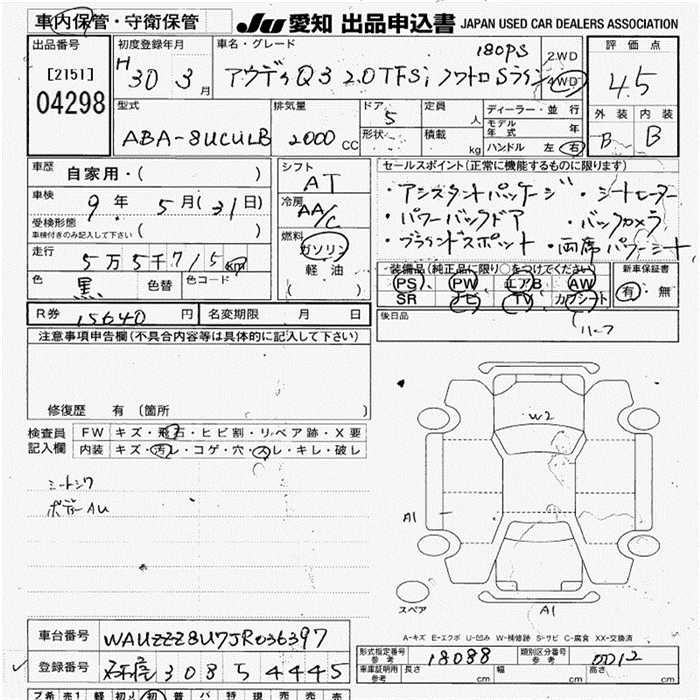 車内保管・守衛保管
JU 愛知 出品申込書 JAPAN USED CAR DEALERS ASSOCIATION
出品番号 初度登録年月 車名・グレード 評価点
[2151] H30 3月 アウディQ3 2.0TFSi クワトロ Sライン 180PS 2WD 4WD 4.5
04298
型式 排気量 ドア 定員 ディーラー・並行 外装 内装
ABA-8UCULB 2000CC 5 人 モデル年式 年 B B
形状 積載 kg ハンドル 左 右
車歴 自家用・( )
シフト AT
セールスポイント(正常に機能するものに限ります)
車検 9年 5月(31)日
冷房 AA/C
・アシスタントパッケージ ・シートヒーター
受検形態
車検付きのみ記入して下さい ( )
・パワーバックドア ・バックカメラ
燃料 ガソリン
軽油
( )
・ブラインドスポット ・両席パワーシート,
走行 5万5千715km
色 黒 色替 色コード
装備品(純正品に限り○をつけてください) 新車保証書
PS PW エアB AW 有・無
SR ナビ TV カワシート
ハーフ
R券 15640円 名変期限 月 日
後日品
注意事項申告欄(不具合内容等は具体的に記入して下さい)
修復歴 有(箇所 )
検査員 FW キズ・飛石・ヒビ割・リペア跡・X要
記入欄 内装 キズ・汚レ・コゲ・穴・スレ・キレ・破レ
シートシワ
ボディーAU
W2
A1
スペア
A1
A-キズ E-エクボ U-凹み W-補修跡 S-サビ C-腐食 XX-交換済
車台番号 WAUZZZ8U7JR036397
形式指定番号 参考 18088 類別区分番号 参考 0012
登録番号 308 4445
車庫証明用 参考 長さ cm 幅 cm 高さ cm